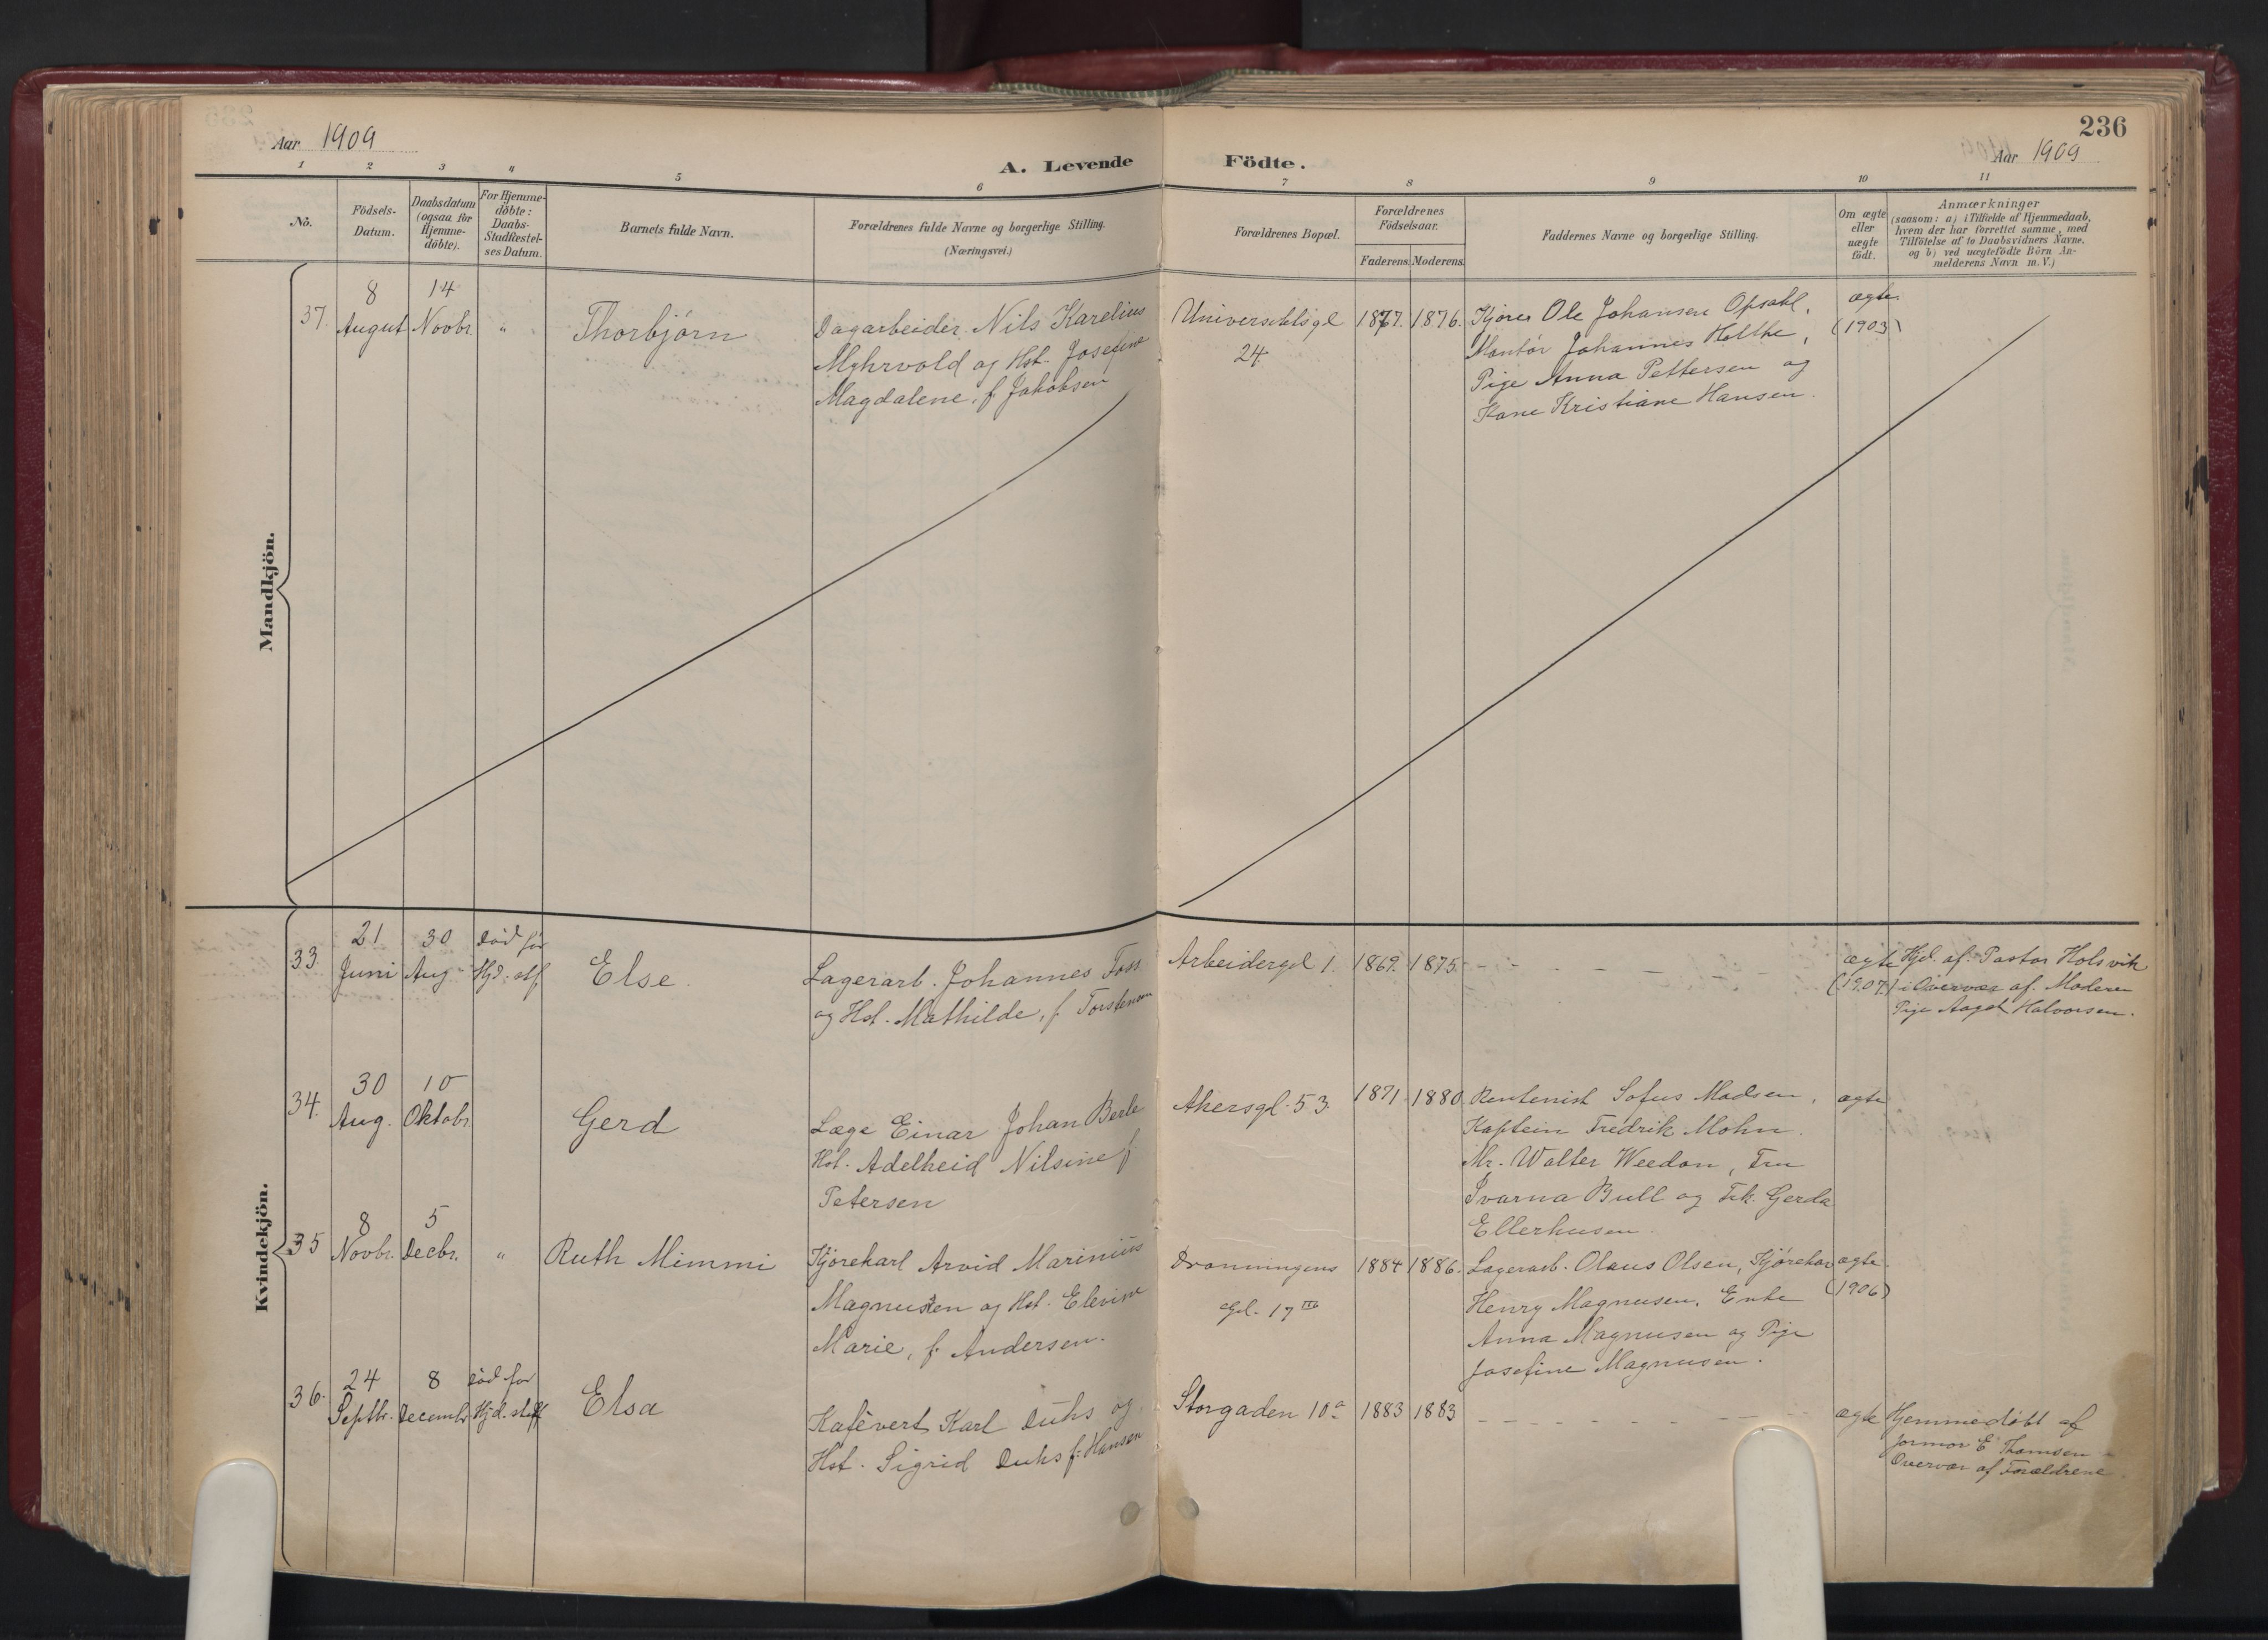 Aar 1909
A. Levende Födte.
236
Aar 1909
1 2 3 4 5 6 7 8 9 10 11
No.
Födsels-
Datum.
Daabsdatum
(ogsaa for
Hjemme-
döbte).
For Hjemme-
döbte:
Daabs-
Stadfæstel-
ses Datum.
Barnets fulde Navn.
Forældrenes fulde Navne og borgerlige Stilling.
(Næringsvei.)
Forældrenes Bopæl.
Forældrenes
Födselsaar.
Faderens. Moderens.
Faddernes Navne og borgerlige Stilling.
Om ægte
eller
uægte
födt.
Anmærkninger
(saasom: a) i Tilfælde af Hjemmedaab,
hvem der har forrettet samme, med
Tilföielse af to Daabsvidners Navne,
og b) ved uægtefödte Börn An-
melderens Navn m. V.)
Mandkjön.
37.
8
August
14
Novbr.
"
Thorbjørn
Dagarbeider Nils Karelius
Myhrvold og Hst. Josefine
Magdalene, f. Jakobsen
Universitetsgd
24.
1877. 1876.
Kjører Ole Johansen Opsahl,
Montør Johannes Holthe,
Pige Anna Pettersen og
Kone Kristiane Hansen.
ægte
(1903)
Kvindekjön.
33.
21
Juni
30
Aug
død før
Hjd. stf.
Else.
Lagerarb. Johannes Foss
og Hst. Mathilde, f. Torstensen
Arbeidergd 1.
1869. 1875.
ægte
(1907)
Hjd. af. Pastor Holsvik
i Overvær af. Moderen
Pige Aagot Halvorsen.
34.
30
Aug.
10
Oktobr.
Gerd
Læge Einar Johan Berle
Hst. Adelheid Nilsine f.
Petersen
Akersgd. 53.
1871. 1880.
Rentenist Sofus Madsen,
Kaptein Fredrik Mohn.
Mr. Walter Weedon, Fru
Svarna Bull og Frk. Gerda
Ellerhusen.
ægte
35
8
Novbr.
5
Decbr.
"
Ruth Mimmi
Kjørekarl Arvid Marinius
Magnussen og Hst. Elevine
Marie, f. Andersen.
Dronningens
Gd. 17
1884 1886.
Lagerarb. Olaus Olsen, Kjørekar
Henry Magnusen. Enke
Anna Magnusen og Pige
Josefine Magnusen.
ægte
(1906)
36.
24
Septbr.
8
Decembr
død før
Hjd. stadf
Elsa
Kafèvert Karl Duhs og
Hst. Sigrid Duhs f. Hansen
Storgaden 10a
1883 1883
ægte
Hjemmedøbt af
Jormor E. Thomsen
Overvær af Forældrene